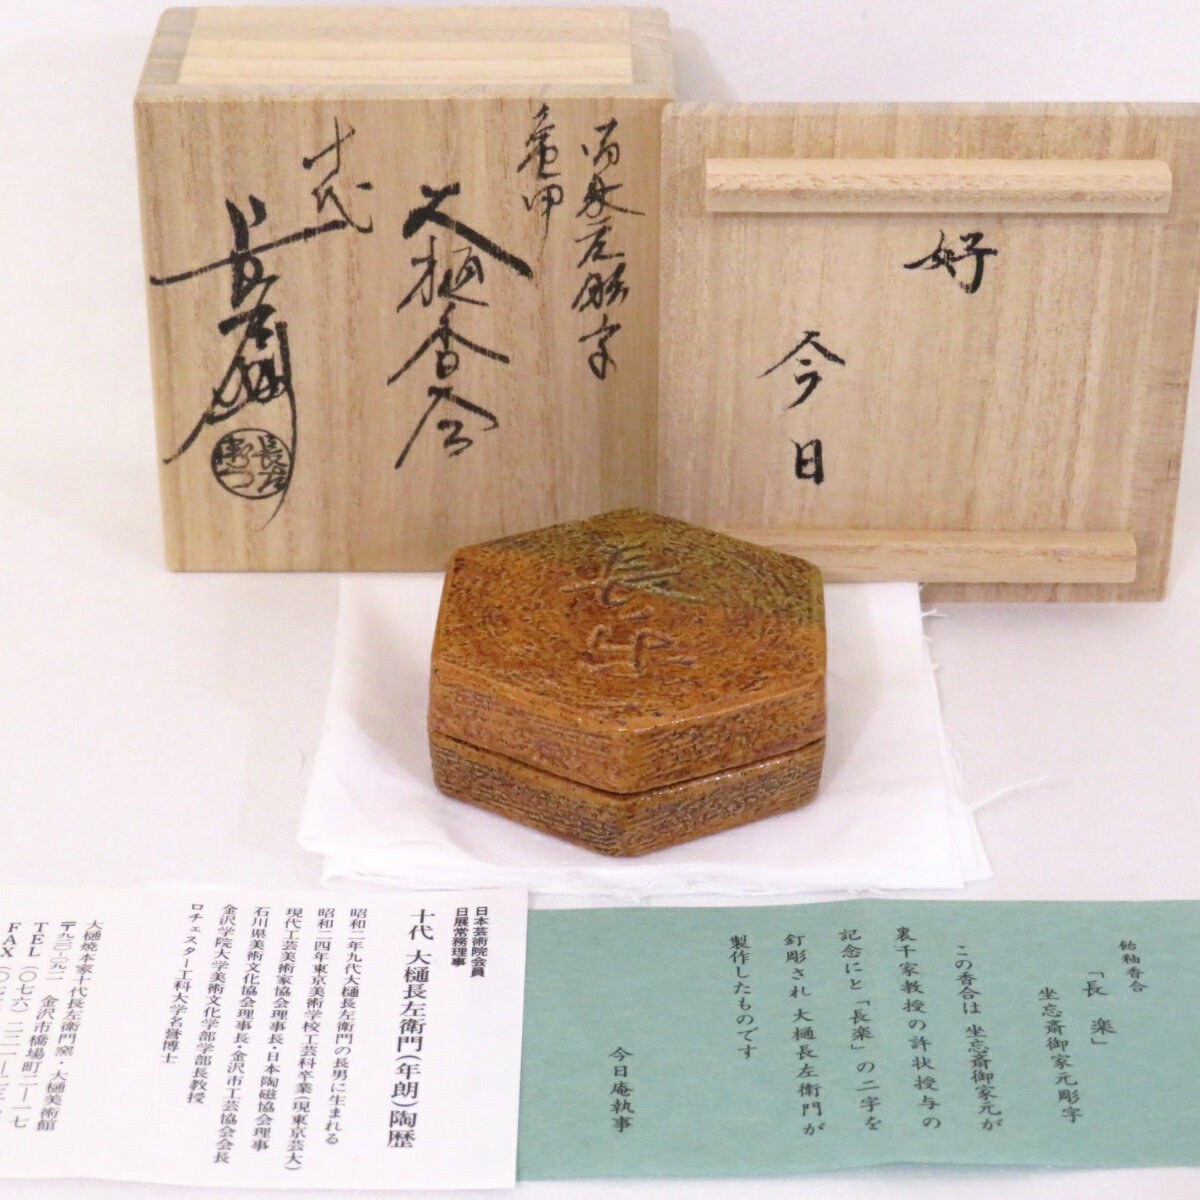 亀甲
大樋香合
十代
長左
好
今日
長楽
飴釉香合
「長楽」
坐忘斎御家元彫字
この香合は 坐忘斎御家元が
裏千家教授の許状授与の
記念にと「長楽」の二字を
釘彫され 大樋長左衛門が
製作したものです
今日庵執事
日本芸術院会員
日展常務理事
十代 大樋長左衛門(年朗)陶歴
昭和二年九代大樋長左衛門の長男に生まれる
昭和二四年東京美術学校工芸科卒業(現東京芸大)
現代工芸美術家協会理事長・日本陶磁協会理事
石川県美術文化協会理事長・金沢市工芸協会会長
金沢学院大学美術文化学部学部長教授
ロチェスター工科大学名誉博士
大樋焼本家十代長左衛門窯・大樋美術館
〒九二〇-〇九一一 金沢市橋場町二-一七
TEL(〇七六)二二一-二
FAX(〇七